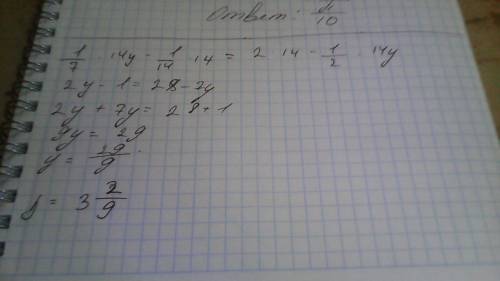 Ответ: /10
1/7 · 14y - 1/14 · 14 = 2 · 14 - 1/2 · 14y
2y - 1 = 28 - 7y
2y + 7y = 28 + 1
9y = 29
y = 29/9.
y = 3 2/9